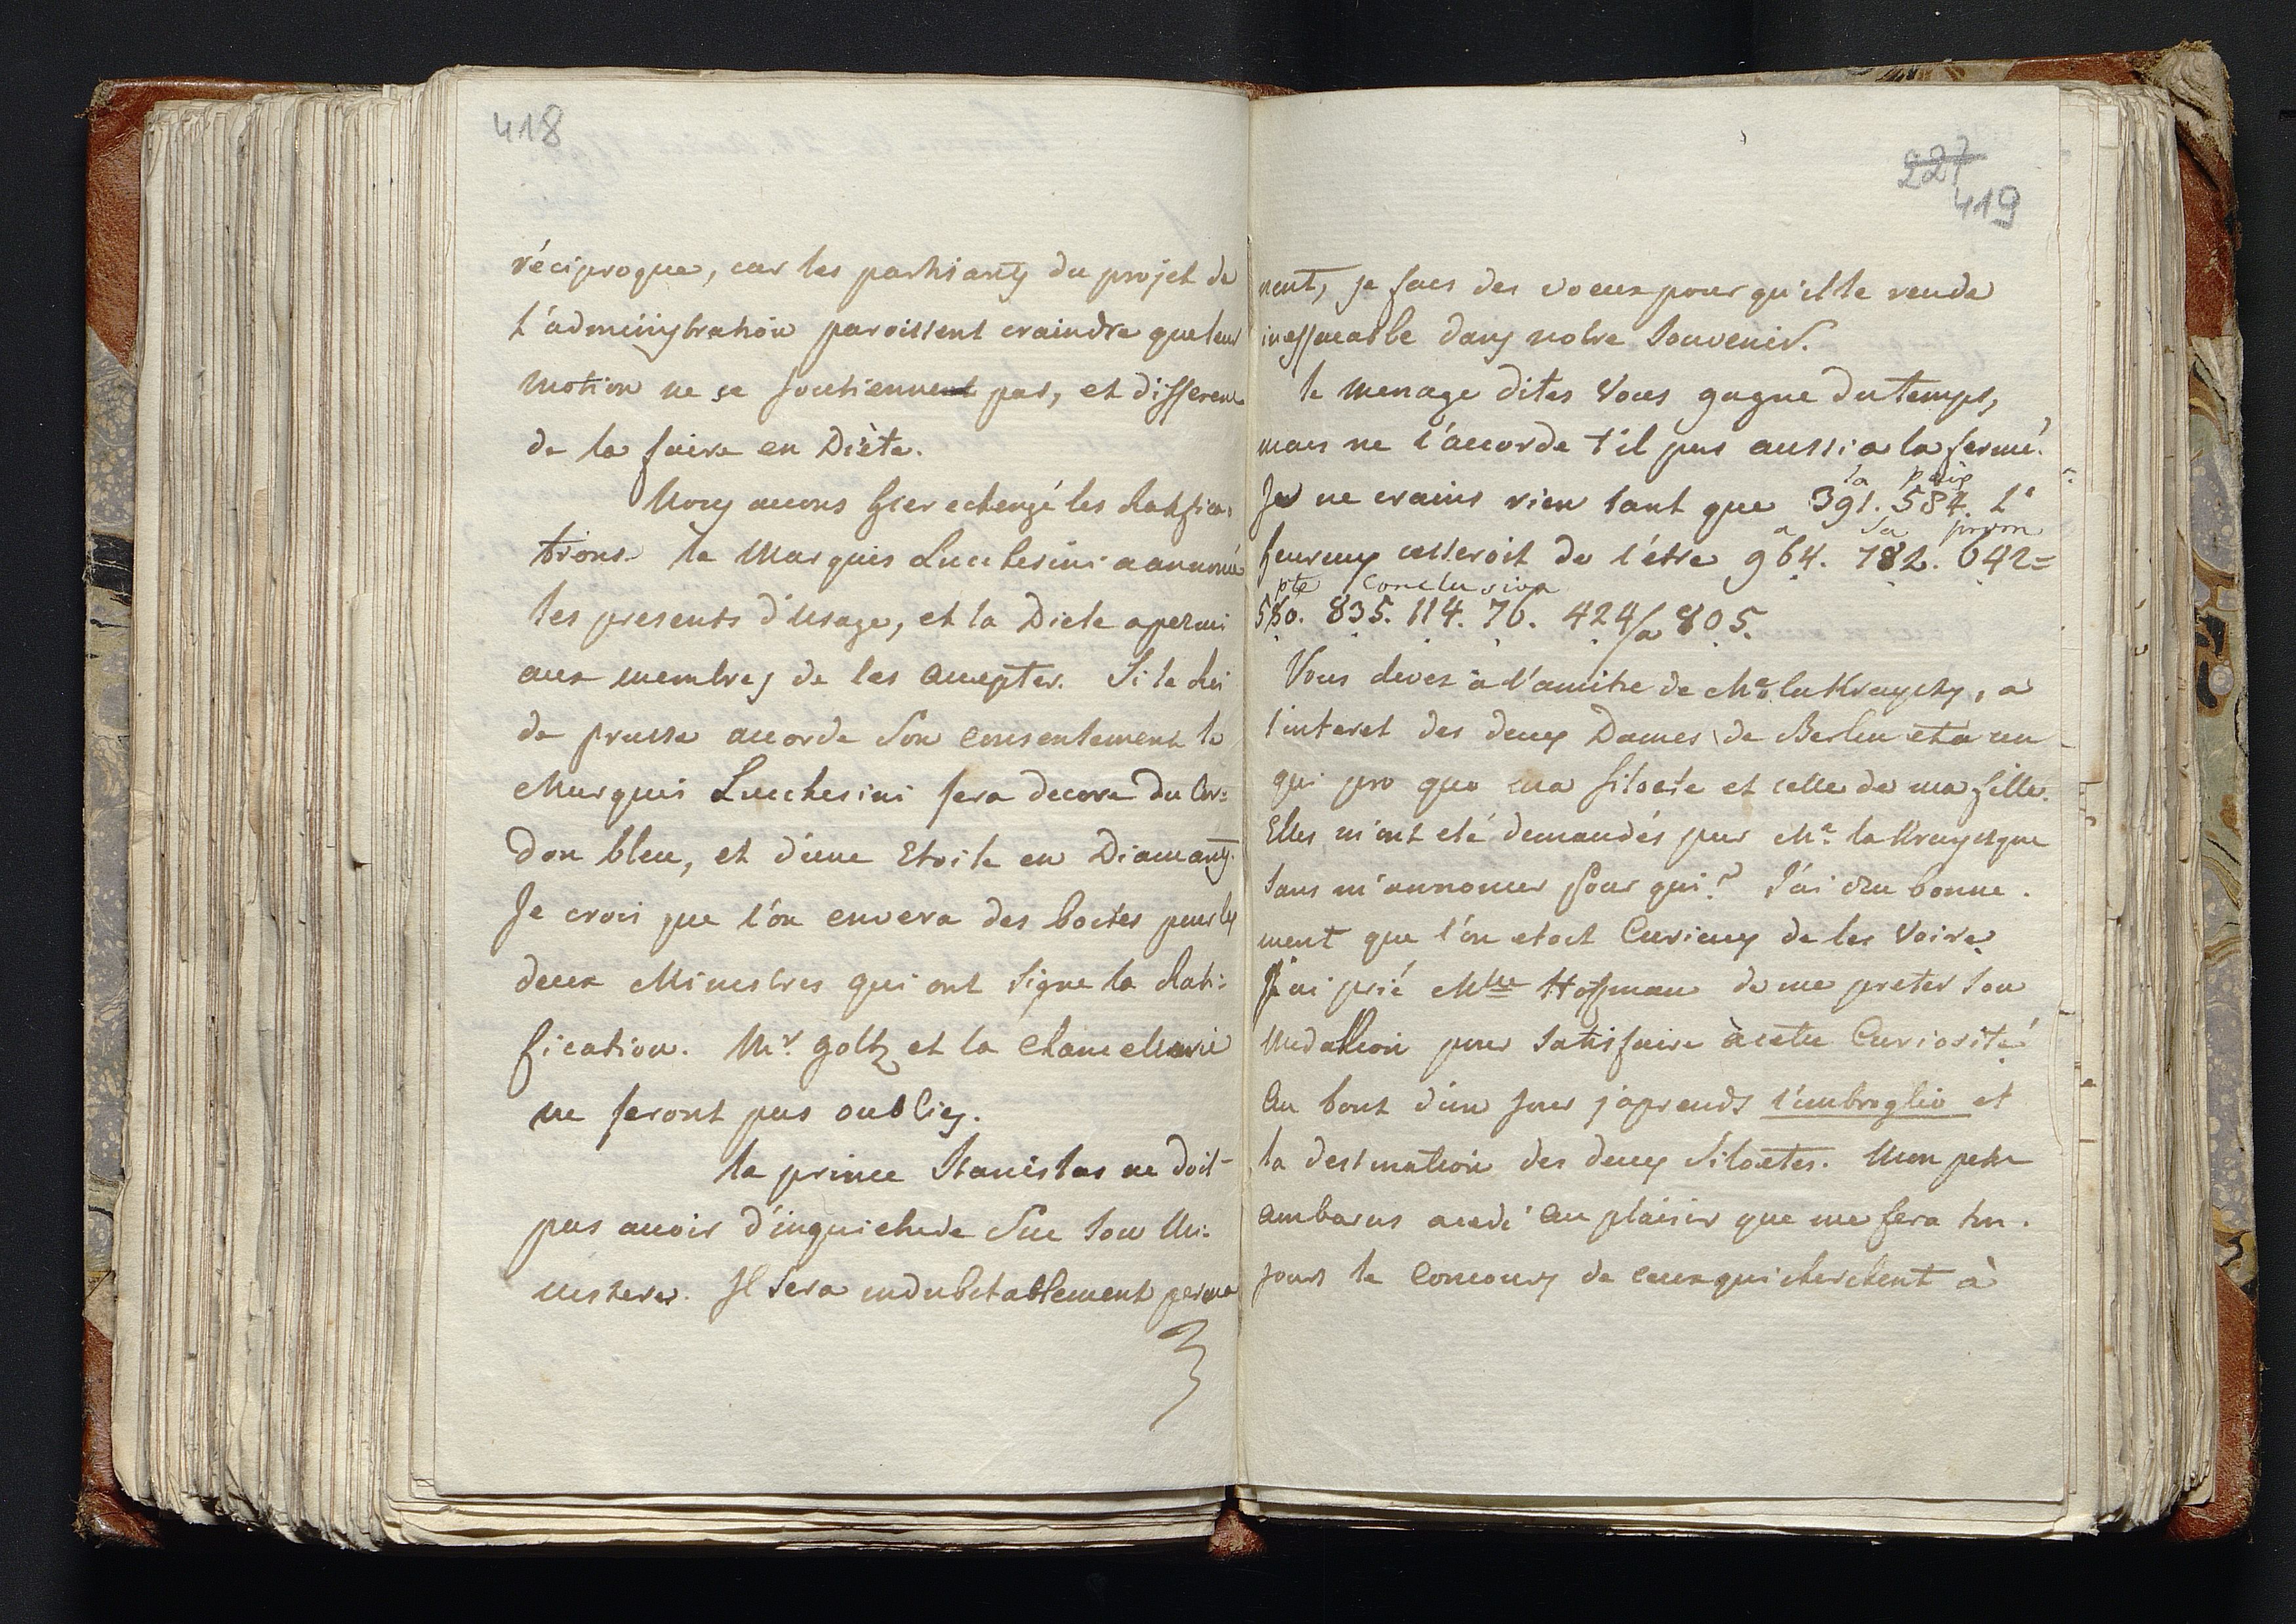 418
réciproque, car les partisants du projet de
l'administration paroissent craindre que leur
motion ne se soutiennent pas, et different
de la faire en Diète.
Nous avons hier echangé les Ratifica:
tions. le Marquis Lucchesini a annoncé
les presents d'usage, et la Diete a permi
aux membres de les accepter. Si le Roi
de prusse accorde son consentement le
Marquis Lucchesini sera decore du Cor:
don bleu, et d'une Etoile en Diamants.
Je crois que l'on envera des boetes pour les
deux Ministres qui ont signe la Rati:
fication. Mr. Goltz et la Chancellerie
ne seront pas oublies.
le prince Stanislas ne doit
pas avoir d'inquietude sur son Mi:
nistere. Il sera indubitablement perma
227
419
nent, je fais des voeux pour qu'il le rende
ineffacable dans notre souvenir.
le menage dites vous gagne du temps,
mais ne l'accorde t'il pas aussi a la
la paix
Je ne crains rien tant que 391. 584. L'
a sa prom
heureux cesseroit de l'être 964. 782. 642=
pte conclusion
580. 835. 114. 76. 424/a 805.
Vous devez à l'amitie de Me la Krayeska, a
l'interet des deux Dames de Berlin et a un
qui pro quo ma siloete et celle de ma fille.
Elles m'ont eté demandés par Me la
sans m'annoncer pour qui? J'ai cru bonne.
ment que l'on etoit Curieux de les voire
J'ai prié Mlle Hoffman de me preter son
Medallion pour satisfaire à cette Curiosité
Au bout d'un jour j'aprends l'imbroglio et
la destination des deux Siloetes. Mon petit
ambaras cede au plaisir que me fera tou.
jours le Concours de ceux qui cherchent à